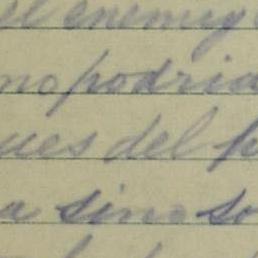 el enemigo
no podria
ues del p
a sino so